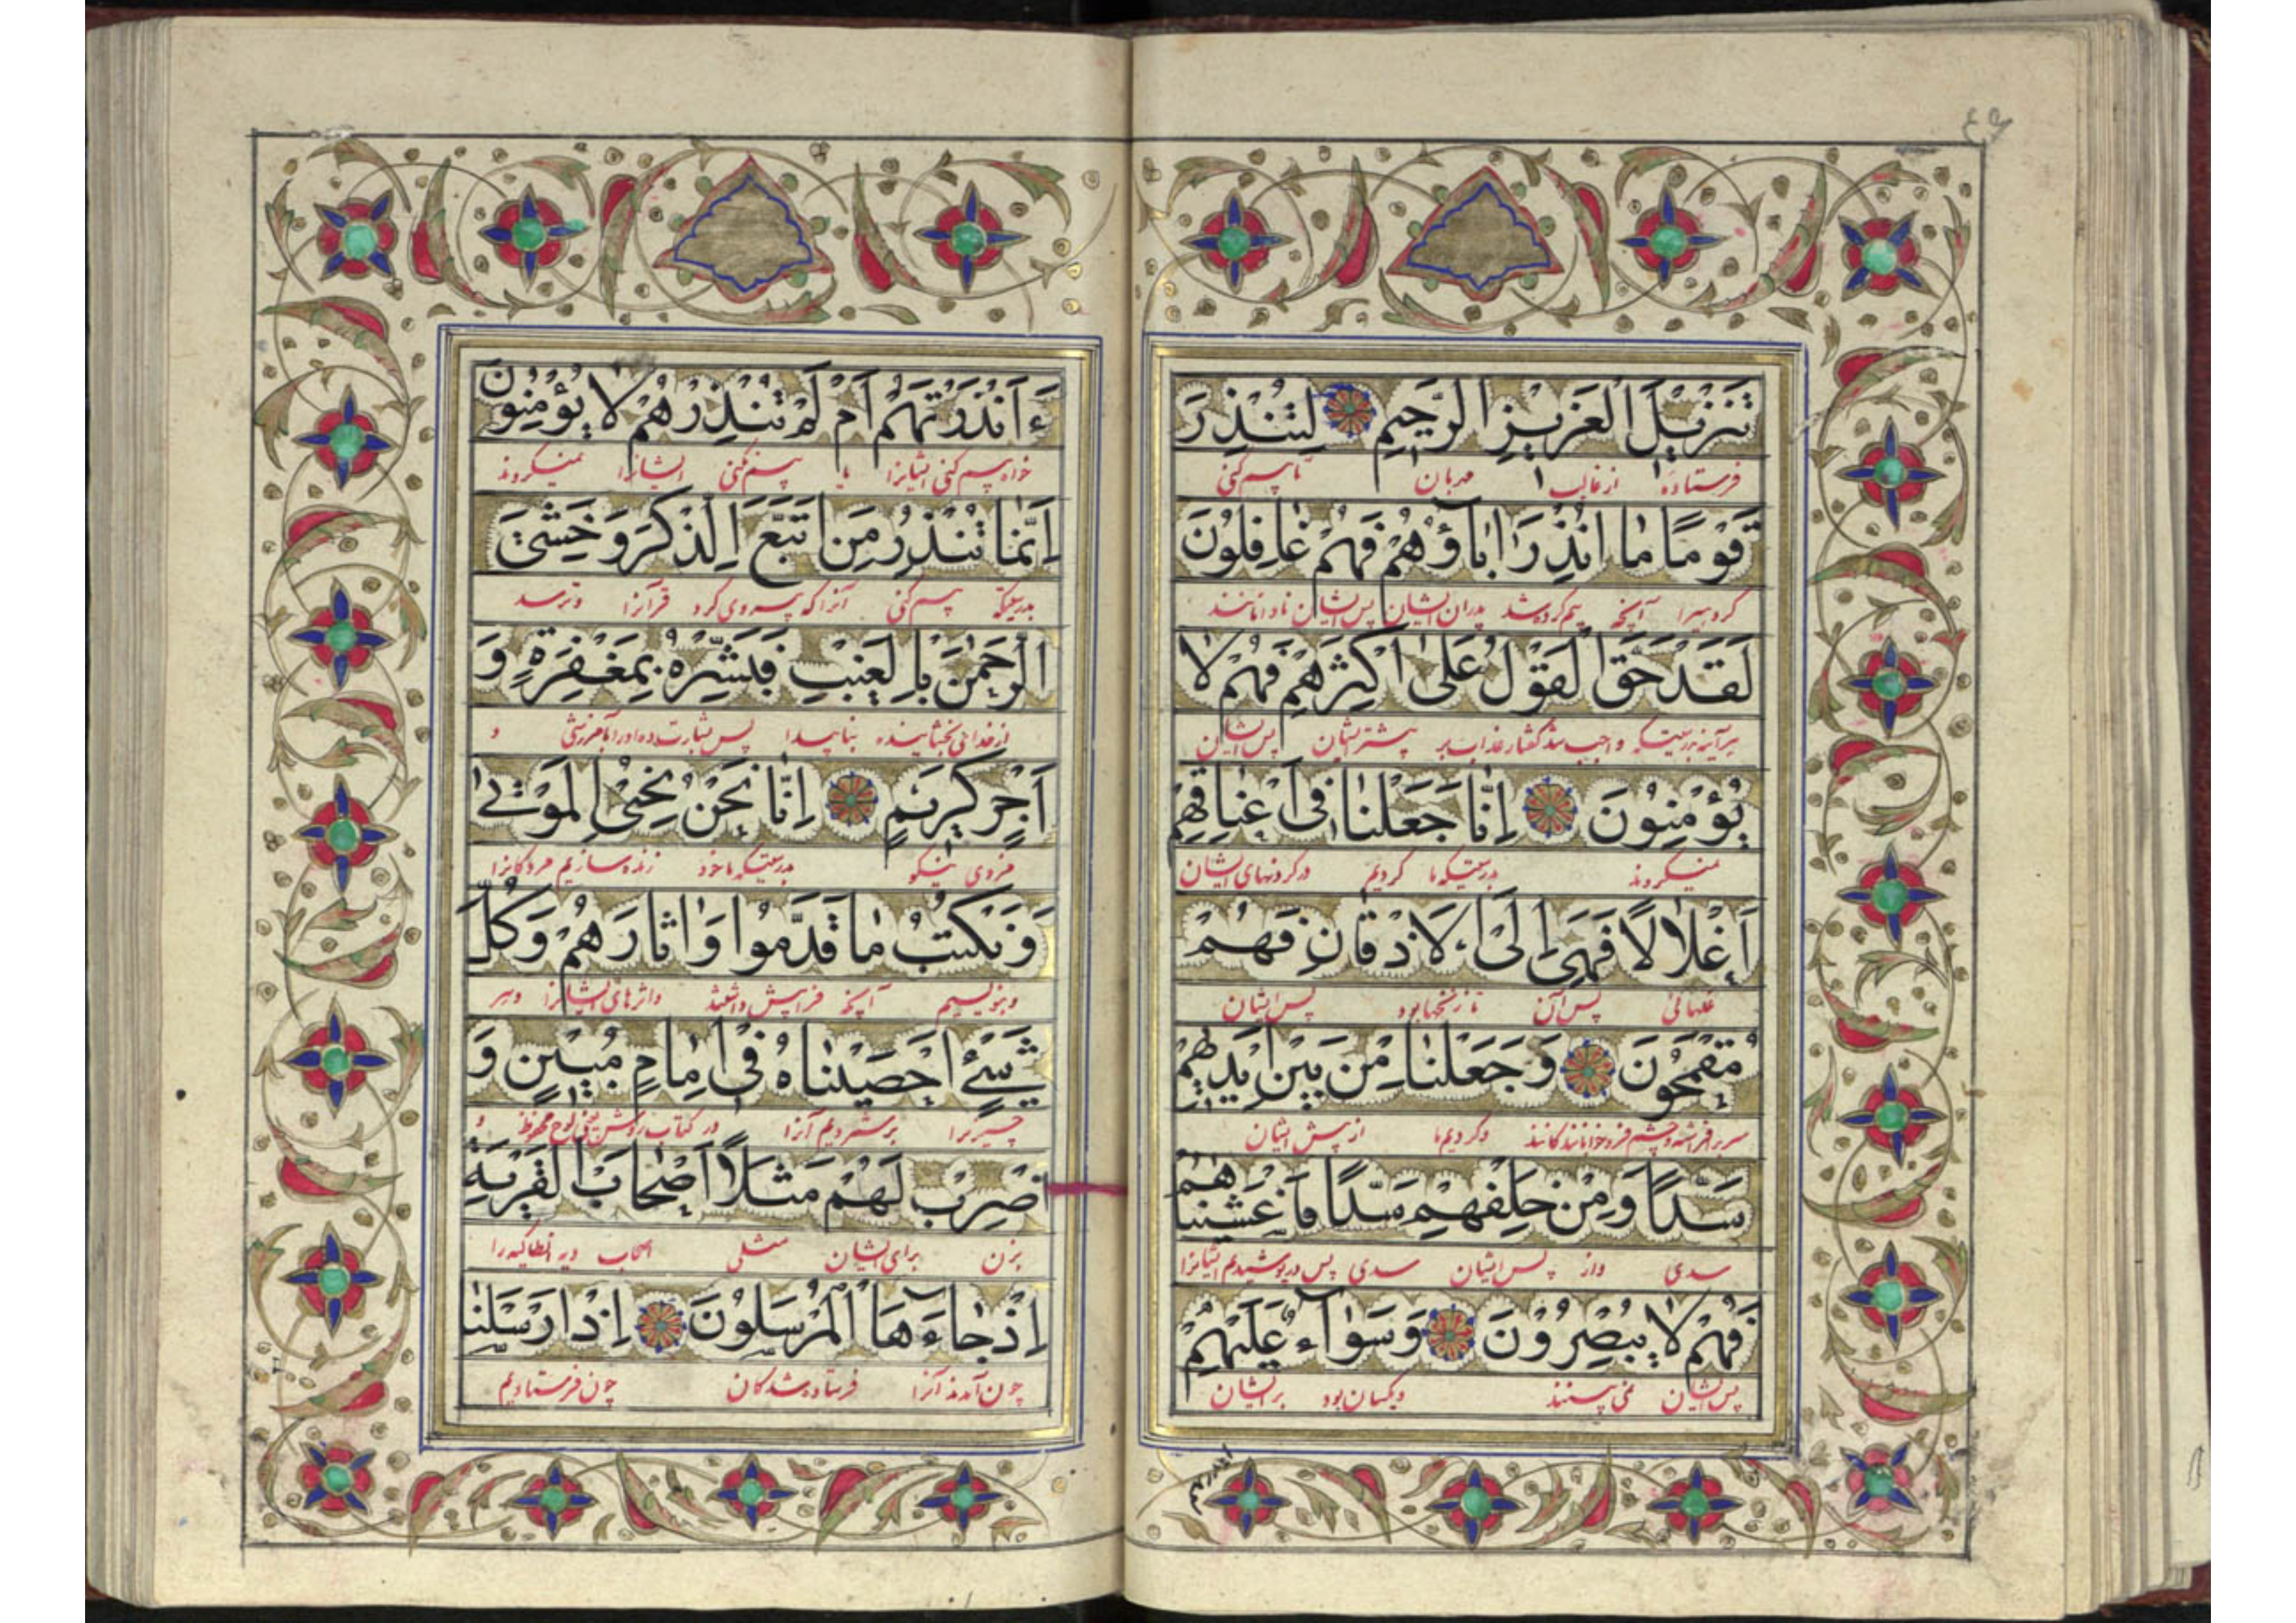 تَنْزِيلَ الْعَزِيزِ الرَّحِيمِ لِتُنْذِرَ
فرستاده از غالب مهربان تا بیم کنی
قَوْمًا مَا اُنْذِرَ اٰبَاؤُهُمْ فَهُمْ غَافِلُونَ
گروهیرا آنچه بیم کرده شد پدران ایشان پس ایشان نادانانند
لَقَدْ حَقَّ الْقَوْلُ عَلٰى اَكْثَرِهِمْ فَهُمْ لَا
هرآینه بدرستیکه واجب شد گفتار عذاب بر بیشتر ایشان پس ایشان
يُؤْمِنُونَ اِنَّا جَعَلْنَا فِى اَعْنَاقِهِمْ
نمیگروند بدرستیکه ما کردیم در گردنهای ایشان
اَغْلَالًا فَهِىَ اِلَى الْاَذْقَانِ فَهُمْ
غلهائی پس آن تا زنخها بود پس ایشان
مُقْمَحُونَ وَجَعَلْنَا مِنْ بَيْنِ اَيْدِيهِمْ
وکردیم ما از پیش ایشان
سَدًّا وَمِنْ خَلْفِهِمْ سَدًّا فَاَغْشَيْنَاهُمْ
سدی واز پس ایشان سدی پس درپوشیدیم ایشانرا
فَهُمْ لَا يُبْصِرُونَ وَسَوَاءٌ عَلَيْهِمْ
پس ایشان نمی بینند ویکسان بود بر ایشان
ءَاَنْذَرْتَهُمْ اَمْ لَمْ تُنْذِرْهُمْ لَا يُؤْمِنُونَ
خواه بیم کنی ایشانرا یا بیم نکنی ایشانرا نمیگروند
اِنَّمَا تُنْذِرُ مَنِ اتَّبَعَ الذِّكْرَ وَخَشِىَ
بدرستیکه بیم کنی آنرا که پیروی کرد قرآنرا وترسد
الرَّحْمٰنَ بِالْغَيْبِ فَبَشِّرْهُ بِمَغْفِرَةٍ وَ
از خدای بخشاینده بناپیدا پس بشارت ده اورا بآمرزشی و
اَجْرٍ كَرِيمٍ اِنَّا نَحْنُ نُحْيِى الْمَوْتٰى
مزدی نیکو بدرستیکه ما خود زنده سازیم مردگانرا
وَنَكْتُبُ مَا قَدَّمُوا وَاٰثَارَهُمْ وَكُلَّ
وبنویسیم آنچه فرا پیش داشتند واثرهای ایشانرا وهر
شَيْءٍ اَحْصَيْنَاهُ فِى اِمَامٍ مُبِينٍ وَ
چیزیرا برشمردیم آنرا در کتاب روشن یعنی لوح محفوظ و
اضْرِبْ لَهُمْ مَثَلًا اَصْحَابَ الْقَرْيَةِ
بزن برای ایشان مثلی اصحاب دیه انطاکیه را
اِذْ جَاءَهَا الْمُرْسَلُونَ اِذْ اَرْسَلْنَا
چون آمدند آنرا فرستاده شدگان چون فرستادیم